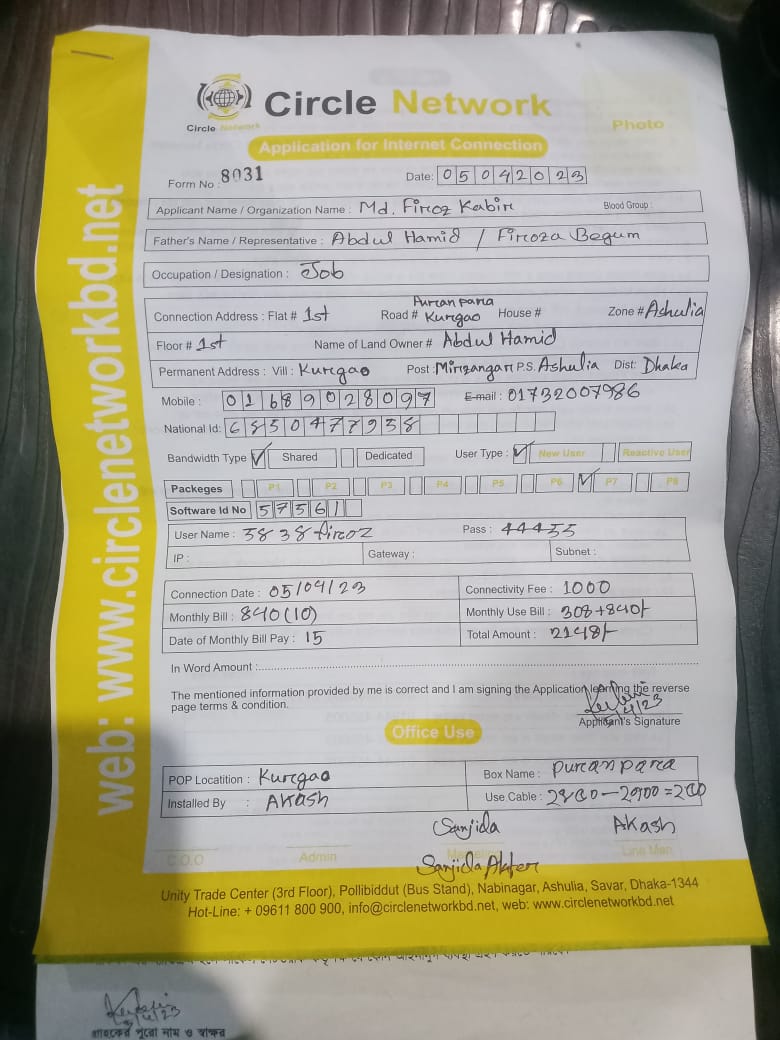 Circle Network
Circle Network
Photo
Application for Internet Connection
Form No : 8031
Date: 05042023
Applicant Name / Organization Name : Md. Firoz Kabir Blood Group :
Father's Name / Representative : Abdul Hamid / Firoza Begum
Occupation / Designation : Job
Connection Address : Flat # 1st Road # Puranpara Kurgao House # Zone # Ashulia
Floor # 1st Name of Land Owner # Abdul Hamid
Permanent Address : Vill : Kurgao Post : Mirzangar P.S. Ashulia Dist: Dhaka
Mobile : 01689028097 E-mail : 01732007986
National Id: 6850477938
Bandwidth Type Shared Dedicated User Type : New User Reactive User
Packeges P1 P2 P3 P4 P5 P6 P7 P8
Software Id No 57561
User Name : 3838firoz Pass : 44455
IP : Gateway : Subnet :
Connection Date : 05/04/23 Connectivity Fee : 1000
Monthly Bill : 840(10) Monthly Use Bill : 308+840/-
Date of Monthly Bill Pay : 15 Total Amount : 2148/-
In Word Amount :
The mentioned information provided by me is correct and I am signing the Application learning the reverse
page terms & condition.
5/4/23
Applicant's Signature
Office Use
POP Locatition : Kurgao Box Name : Puranpara
Installed By : Akash Use Cable : 2800-2900=200
Sanjida Akash
C.O.O Admin Line Man
Sanjida Akter
Unity Trade Center (3rd Floor), Pollibiddut (Bus Stand), Nabinagar, Ashulia, Savar, Dhaka-1344
Hot-Line: + 09611 800 900, info@circlenetworkbd.net, web: www.circlenetworkbd.net
web: www.circlenetworkbd.net
5/4/23
গ্রাহকের পুরো নাম ও স্বাক্ষর